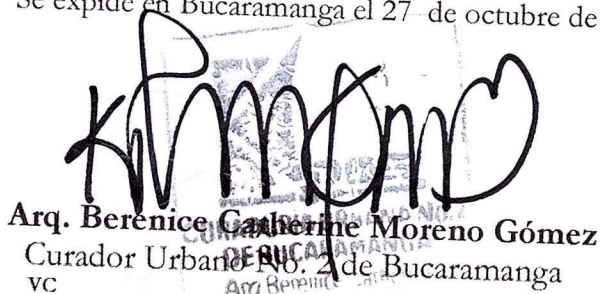 Se expide en Bucaramanga el 27 de octubre de
Arq. Berenice Catherine Moreno Gómez
Curador Urbano No. 2 de Bucaramanga
vc
DE BUCARAMANGA
Arq Berenice